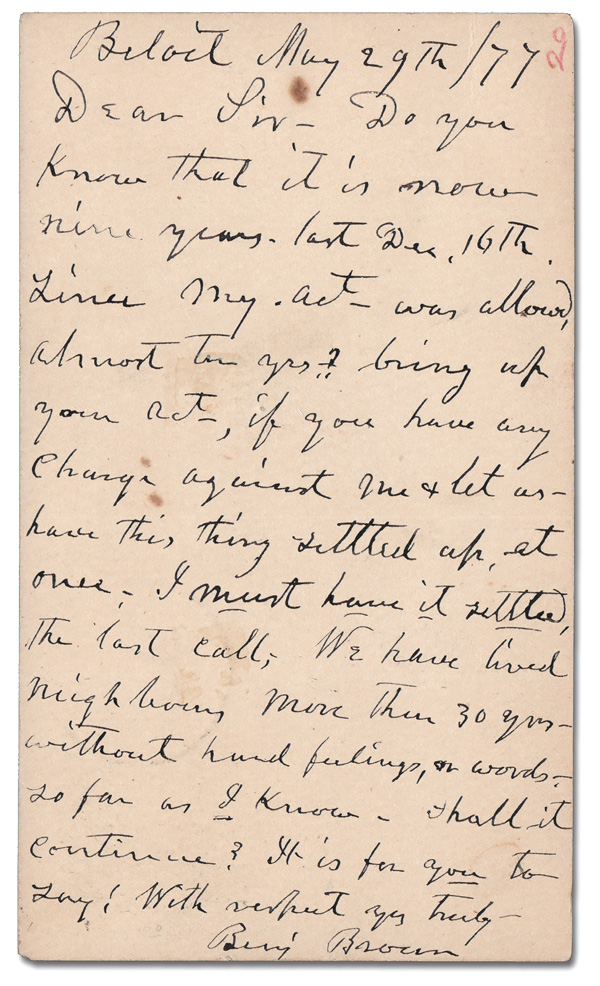 Beloit May 29th/77 29
Dear Sir- Do you
Know that it is now
nine years- last Dec. 16th.
since my act- was allowed,
almost ten yrs? bring up
your act-, if you have any
charge against me & let us-
have this thing settled up, at
once,- I must have it settled,
the last call,- We have lived
neighbours more then 30 yrs-
without hard feelings, or words-
so far as I Know- shall it
continue? It is for you to
say! With respect yrs truly-
Benj Brown